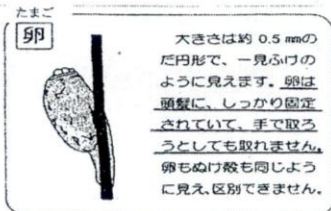 たまご
卵
大きさは約 0.5 mmの
だ円形で、一見ふけの
ように見えます。卵は
頭髪に、しっかり固定
されていて、手で取ろ
うとしても取れません。
卵もぬけ殻も同じよう
に見え、区別できません。